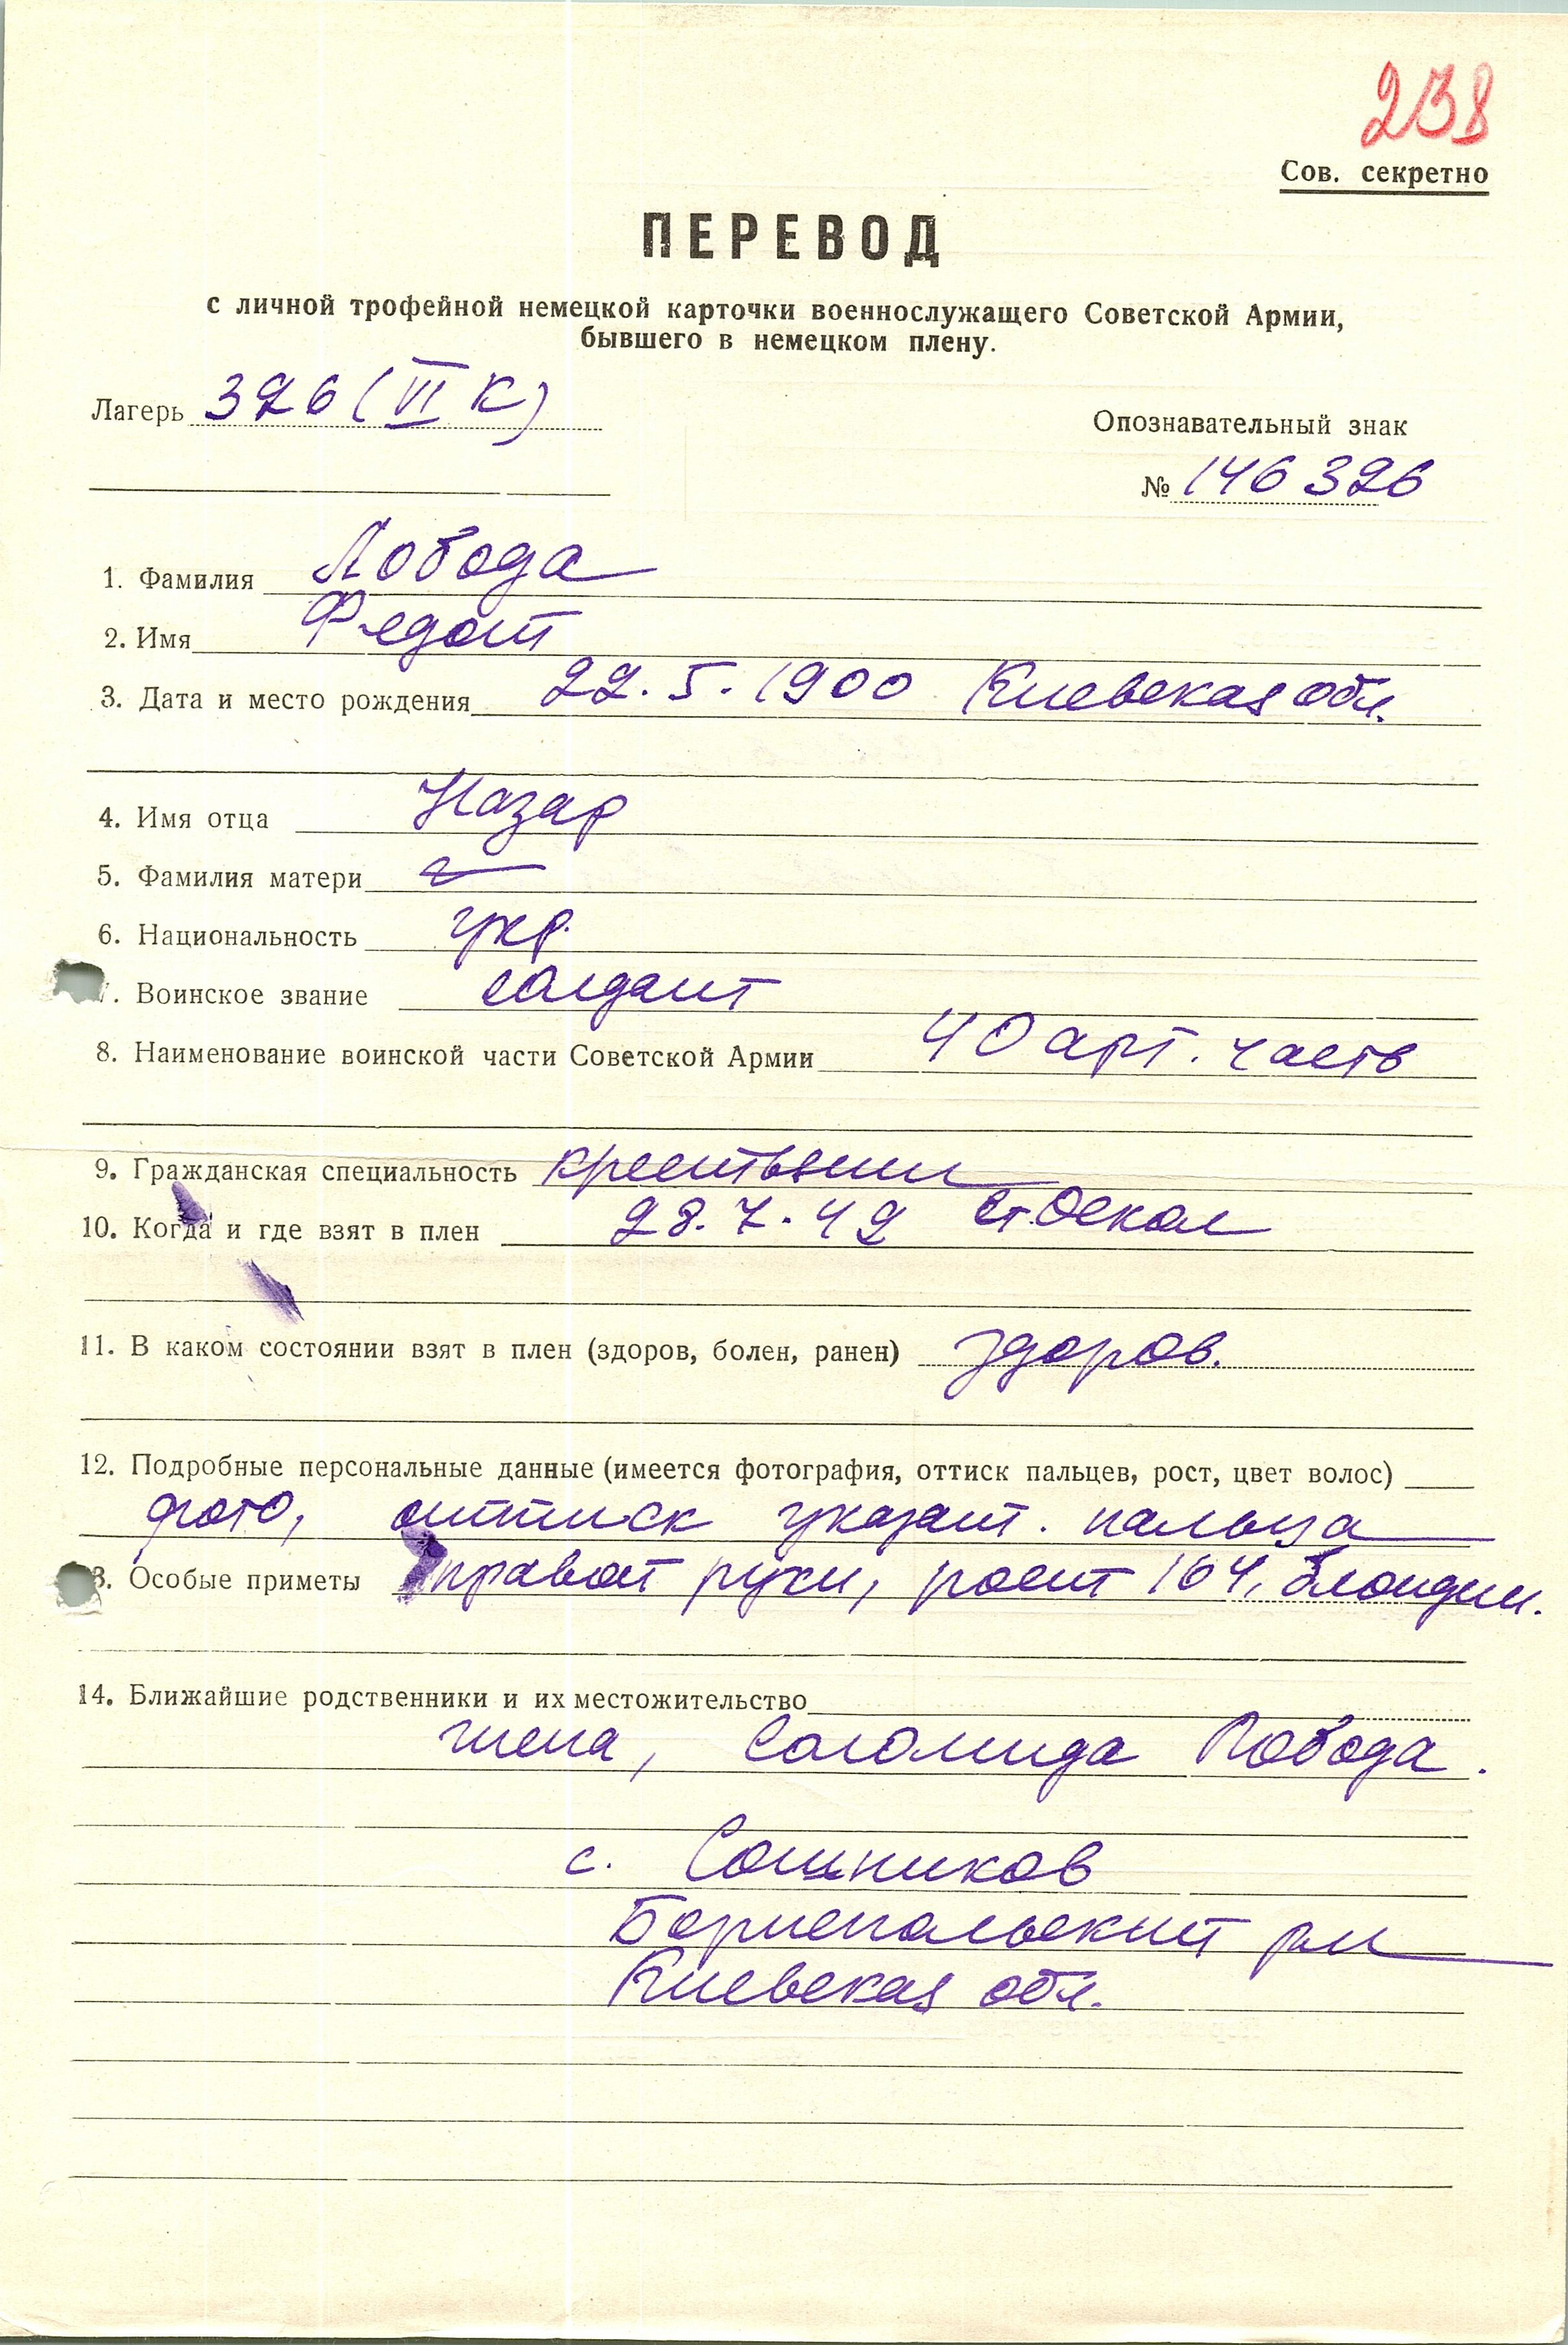 238
Сов. секретно
ПЕРЕВОД
с личной трофейной немецкой карточки военнослужащего Советской Армии,
бывшего в немецком плену.
Лагерь 326 (VI К)
Опознавательный знак
№ 146326
1. Фамилия Лобода
2. Имя Федот
3. Дата и место рождения 22.5.1900 Киевская обл.
4. Имя отца Назар
5. Фамилия матери
6. Национальность укр.
7. Воинское звание солдат
8. Наименование воинской части Советской Армии 40 арт. часть
9. Гражданская специальность крестьянин
10. Когда и где взят в плен 28.7.42 Ст. Оскол
11. В каком состоянии взят в плен (здоров, болен, ранен) здоров.
12. Подробные персональные данные (имеется фотография, оттиск пальцев, рост, цвет волос)
фото, оттиск указат. пальца
13. Особые приметы правой руки, рост 164, блондин.
14. Ближайшие родственники и их местожительство
жена, Соломида Лобода.
с. Сошников
Бориспольский рн
Киевская обл.